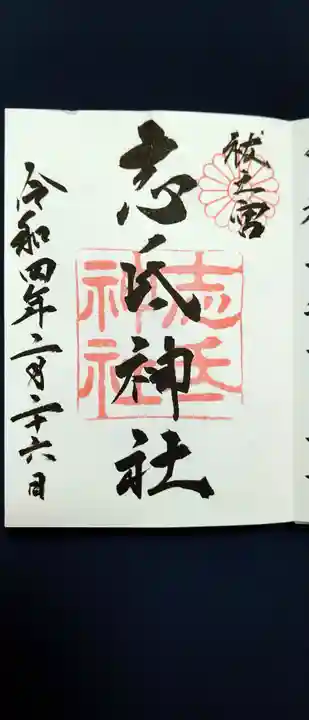 祓之宮
志氐神社
志氐
神社
令和四年二月二十六日